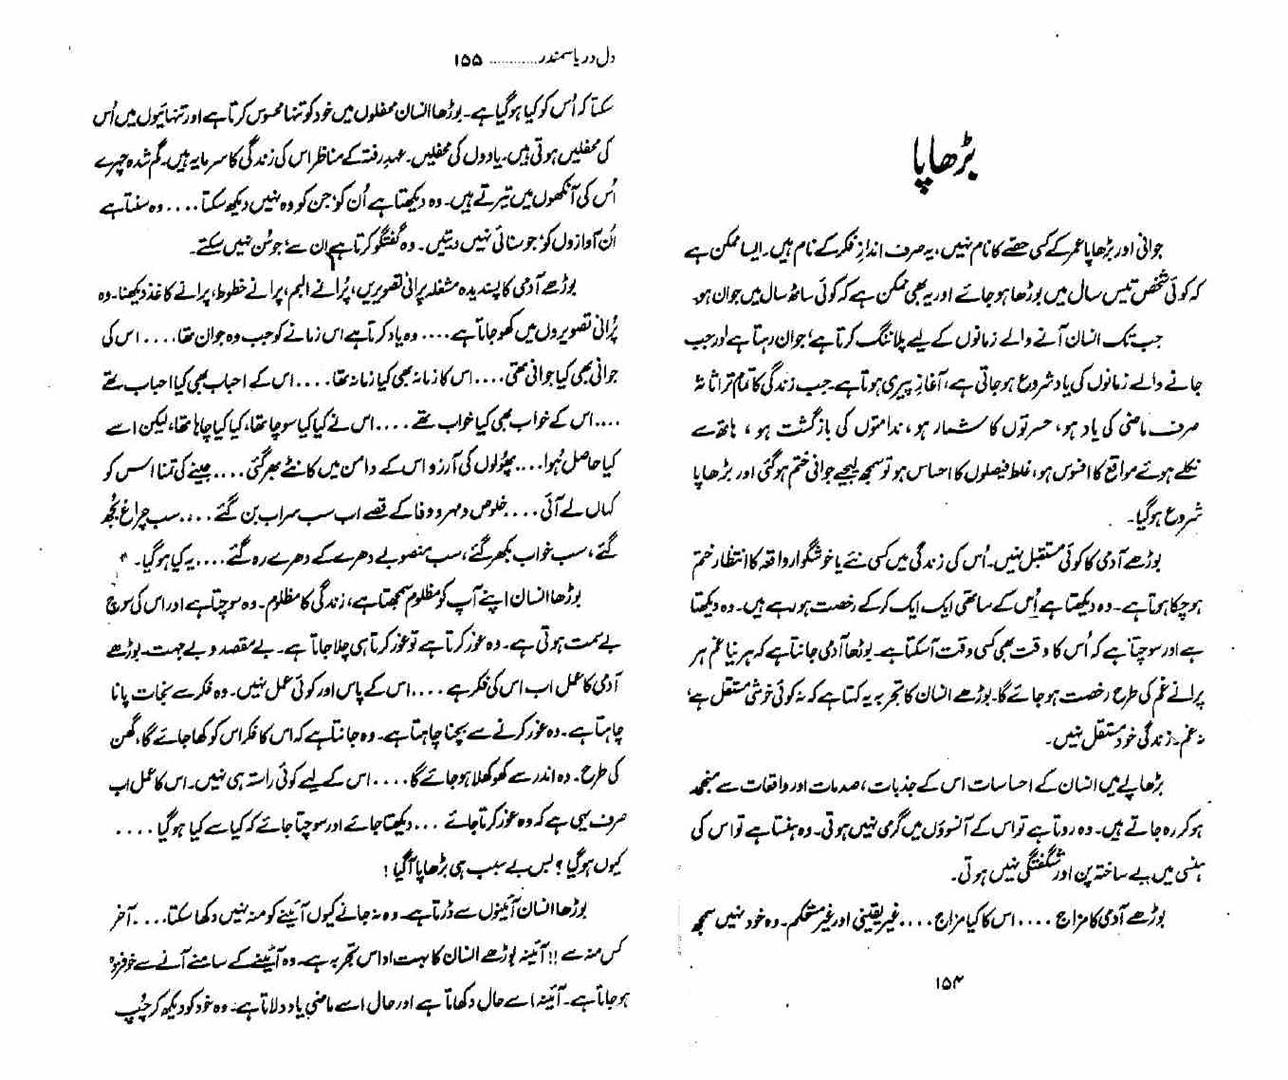 بڑھاپا
جوانی اور بڑھاپا عمر کے کسی حصّے کا نام نہیں، یہ صرف اندازِ فکر کے نام ہیں۔ ایسا ممکن ہے
کہ کوئی شخص تیس سال میں بوڑھا ہو جائے اور یہ بھی ممکن ہے کہ کوئی ساٹھ سال میں جوان ہو۔
جب تک انسان آنے والے زمانوں کے لیے پلاننگ کرتا ہے، جوان رہتا ہے اور جب
جانے والے زمانوں کی یاد شروع ہو جاتی ہے، آغازِ پیری ہوتا ہے۔ جب زندگی کا تمام تر اثاثہ
صرف ماضی کی یاد ہو، حسرتوں کا شمار ہو، ندامتوں کی بازگشت ہو، ہاتھ سے
نکلے ہوئے مواقع کا افسوس ہو، غلط فیصلوں کا احساس ہو تو سمجھ لیجیے جوانی ختم ہو گئی اور بڑھاپا
شروع ہو گیا۔
بوڑھے آدمی کا کوئی مستقبل نہیں۔ اُس کی زندگی میں کسی نئے یا خوشگوار واقعہ کا انتظار ختم
ہو چکا ہوتا ہے۔ وہ دیکھتا ہے اِس کے ساتھی ایک ایک کر کے رخصت ہو رہے ہیں۔ وہ دیکھتا
ہے اور سوچتا ہے کہ اُس کا وقت بھی کسی وقت آ سکتا ہے۔ بوڑھا آدمی جانتا ہے کہ ہر نیا غم ہر
پرانے غم کی طرح رخصت ہو جائے گا۔ بوڑھے انسان کا تجربہ یہ کہتا ہے کہ نہ کوئی خوشی مستقل ہے،
نہ غم۔ زندگی خود مستقل نہیں۔
بڑھاپے میں انسان کے احساسات اس کے جذبات، صدمات اور واقعات سے منجمد
ہو کر رہ جاتے ہیں۔ وہ روتا ہے تو اس کے آنسوؤں میں گرمی نہیں ہوتی۔ وہ ہنستا ہے تو اس کی
ہنسی میں بے ساختہ پن اور شگفتگی نہیں ہوتی۔
بوڑھے آدمی کا مزاج .... اس کا کیا مزاج .... غیر یقینی اور غیر مستحکم۔ وہ خود نہیں سمجھ
۱۵۴
دل دریا سمندر ............ ۱۵۵
سکتا کہ اُس کو کیا ہو گیا ہے۔ بوڑھا انسان محفلوں میں خود کو تنہا محسوس کرتا ہے اور تنہائیوں میں اُس
کی محفلیں ہوتی ہیں۔ یادوں کی محفلیں۔ عہدِ رفتہ کے مناظر اس کی زندگی کا سرمایہ ہیں۔ گم شدہ چہرے
اُس کی آنکھوں میں تیرتے ہیں۔ وہ دیکھتا ہے اُن کو، جن کو وہ نہیں دیکھ سکتا .... وہ سنتا ہے
اُن آوازوں کو، جو سنائی نہیں دیتیں۔ وہ گفتگو کرتا ہے اِن سے، جو سُن نہیں سکتے۔
بوڑھے آدمی کا پسندیدہ مشغلہ پرانی تصویریں، پُرانے البم، پرانے خطوط، پرانے کاغذ دیکھنا۔ وہ
پُرانی تصویروں میں کھو جاتا ہے .... وہ یاد کرتا ہے اس زمانے کو جب وہ جوان تھا .... اس کی
جوانی بھی کیا جوانی تھی .... اس کا زمانہ بھی کیا زمانہ تھا .... اس کے احباب بھی کیا احباب تھے
.... اس کے خواب بھی کیا خواب تھے .... اس نے کیا کیا سوچا تھا، کیا کیا چاہا تھا، لیکن اسے
کیا حاصل ہُوا .... پھُولوں کی آرزو اس کے دامن میں کانٹے بھر گئی .... جینے کی تمنا اس کو
کہاں لے آئی .... خلوص و مہر و وفا کے قصے اب سب سراب بن گئے .... سب چراغ بُجھ
گئے، سب خواب بکھر گئے، سب منصوبے دھرے کے دھرے رہ گئے .... یہ کیا ہو گیا۔
بوڑھا انسان اپنے آپ کو مظلوم سمجھتا ہے، زندگی کا مظلوم۔ وہ سوچتا ہے اور اس کی سوچ
بے سمت ہوتی ہے۔ وہ غور کرتا ہے تو غور کرتا ہی چلا جاتا ہے۔ بے مقصد و بے جہت۔ بوڑھے
آدمی کا عمل اب اس کی فکر ہے .... اس کے پاس اور کوئی عمل نہیں۔ وہ فکر سے نجات پانا
چاہتا ہے۔ وہ غور کرنے سے بچنا چاہتا ہے۔ وہ جانتا ہے کہ اس کا فکر اس کو کھا جائے گا، گھن
کی طرح۔ وہ اندر سے کھوکھلا ہو جائے گا .... اس کے لیے کوئی راستہ ہی نہیں۔ اس کا عمل اب
صرف یہی ہے کہ وہ غور کرتا جائے ... دیکھتا جائے اور سوچتا جائے کہ کیا سے کیا ہو گیا ....
کیوں ہو گیا؟ بس بے سبب ہی بڑھاپا آ گیا!
بوڑھا انسان آئینوں سے ڈرتا ہے۔ وہ نہ جانے کیوں آئینے کو منہ نہیں دکھا سکتا .... آخر
کس منہ سے!! آئینہ بوڑھے انسان کا بہت اداس تجربہ ہے۔ وہ آئینے کے سامنے آنے سے خوفزدہ
ہو جاتا ہے۔ آئینہ اسے حال دکھاتا ہے اور حال اسے ماضی یاد دلاتا ہے۔ وہ خود کو دیکھ کر چُپ